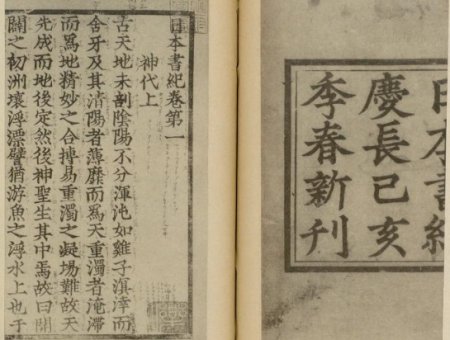 日本書紀
慶長己亥
季春新刊
日本書紀卷第一
神代上
古天地未剖陰陽不分渾沌如雞子溟涬而
含牙及其清陽者薄靡而爲天重濁者淹滯
而爲地精妙之合搏易重濁之凝場難故天
先成而地後定然後神聖生其中焉故曰開
闢之初洲壤浮漂譬猶游魚之浮水上也于